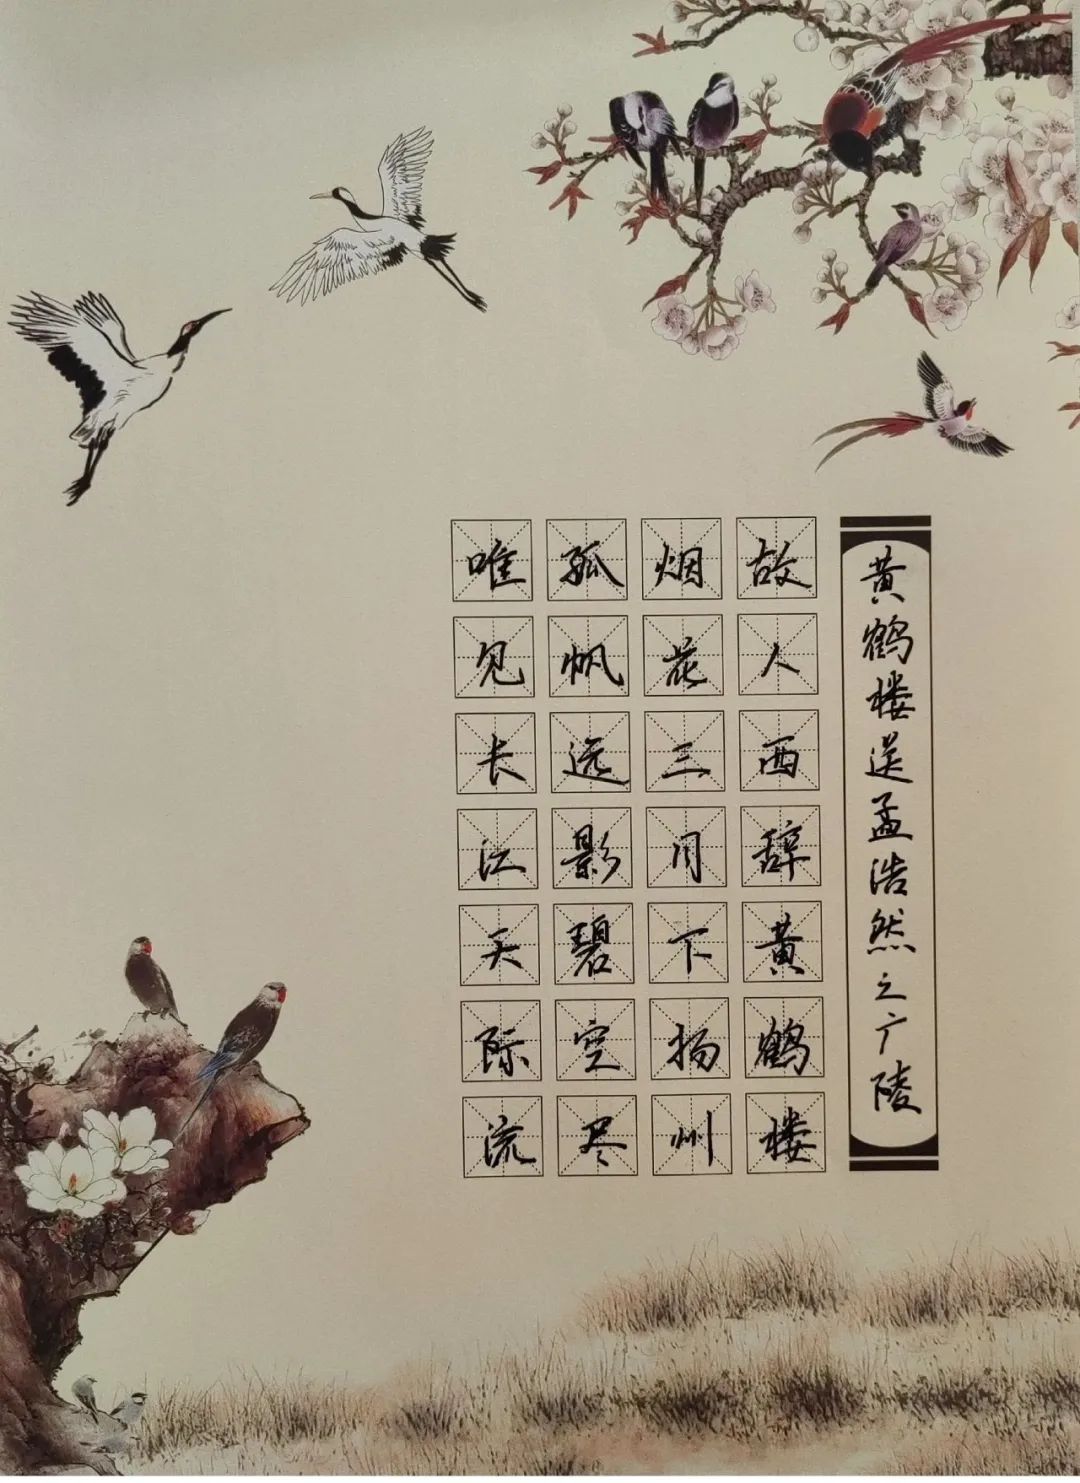 黄鹤楼送孟浩然之广陵
故人西辞黄鹤楼
烟花三月下扬州
孤帆远影碧空尽
唯见长江天际流